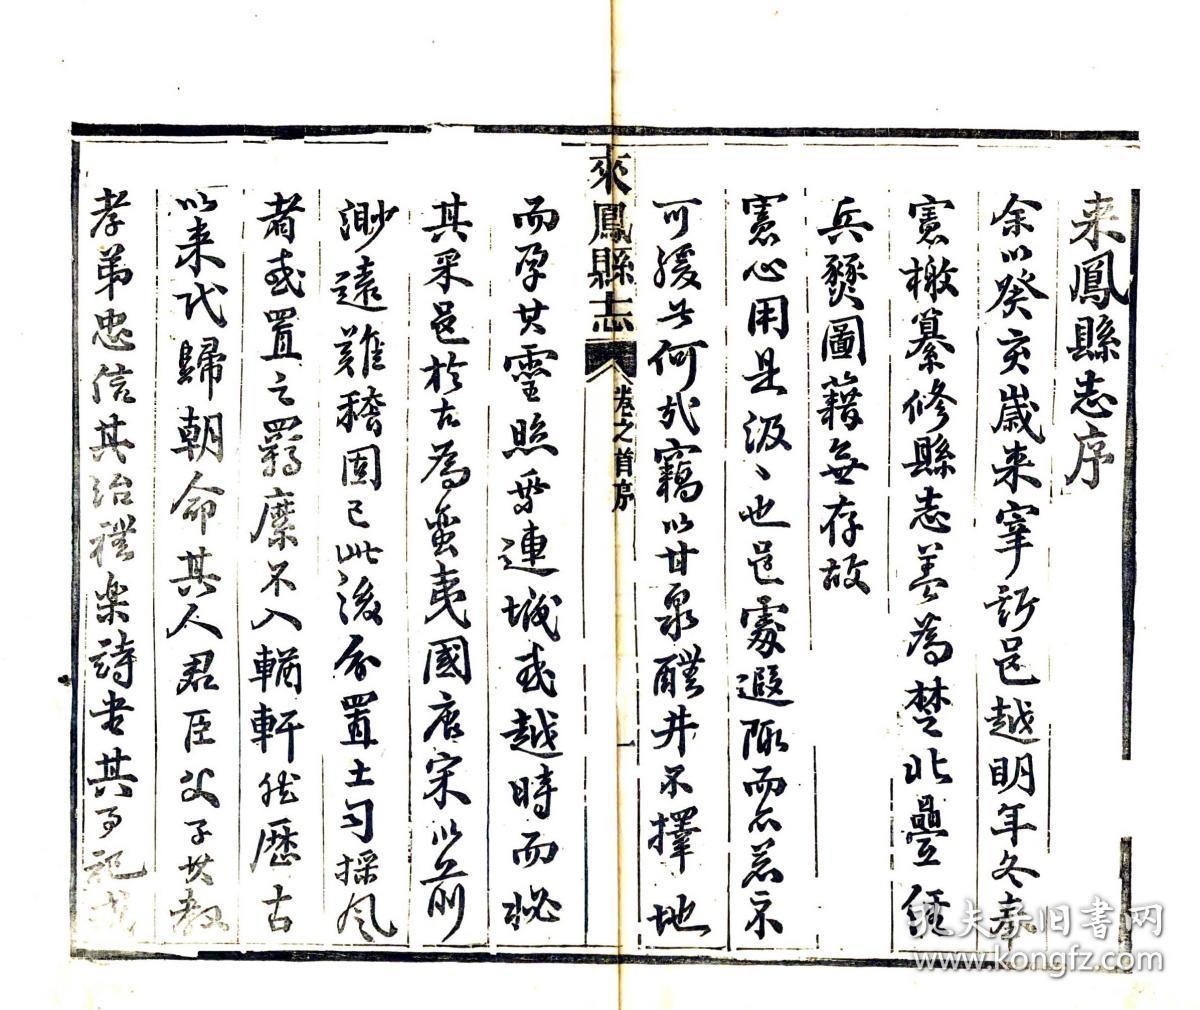 来鳳縣志序
余以癸亥歲来宰訢邑越明年冬奉
憲檄纂修縣志蓋為楚北疊經
兵燹圖籍無存故
憲心用是汲〻也邑處遐陬而亦若示
可緩者何哉竊以甘泉醴井不擇地
來鳳縣志 卷之首序 一
而孕其靈照乘連城或越時而秘
其采邑於古為蠻夷國唐宋以前
渺遠難稽固已此後分置土司採風
者或置之羈縻不入輶軒然歷古
以来代歸朝命其人君臣父子其教
孝弟忠信其治禮樂詩書其事記或
孔夫子旧书网
www.kongfz.com